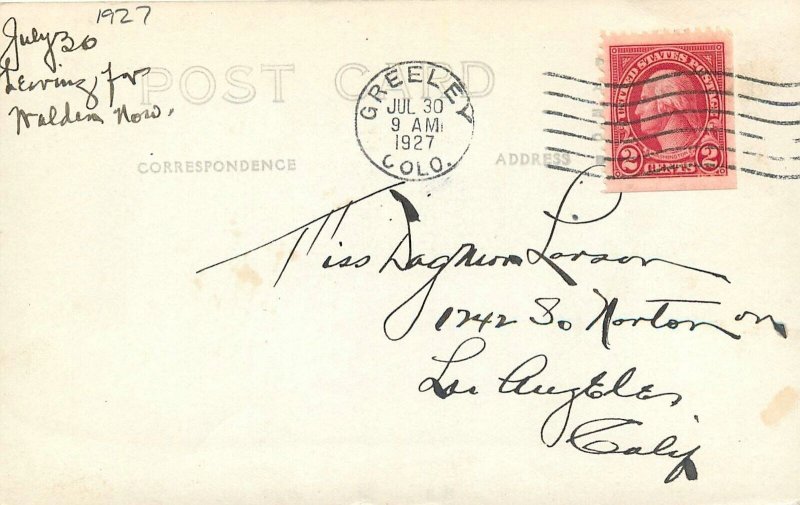 1927
July 30
Leaving for
Walden Now.
POST CARD
CORRESPONDENCE
ADDRESS
GREELEY
JUL 30
9 AM
1927
COLO.
UNITED STATES POSTAGE
WASHINGTON
2 CENTS 2
Miss Dagmar Larson
1242 So Norton
Los Angeles
Calif